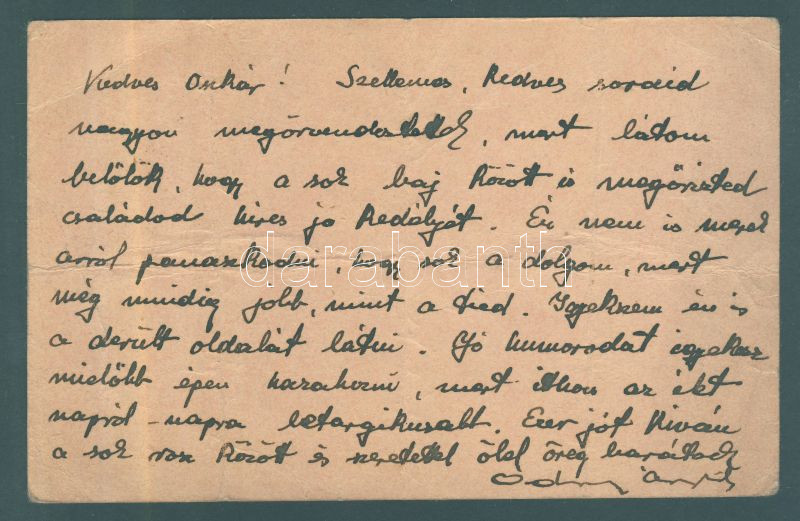 Kedves Oszkár! Szellemes, kedves soraid
nagyon megörvendeztettek, mert látom
belőlük, hogy a sok baj között is megőrizted
családod híres jó kedélyét. Én nem is merek
arról panaszkodni, hogy sok a dolgom, mert
még mindig jobb, mint a tied. Igyekszem én is
a derült oldalát látni. Jó humorodat igyekezz
mielőbb épen hazahozni, mert itthon az élet
napról-napra letargikusabb. Ezer jót kíván
a sok rossz között és szeretettel ölel öreg barátod
darabanth